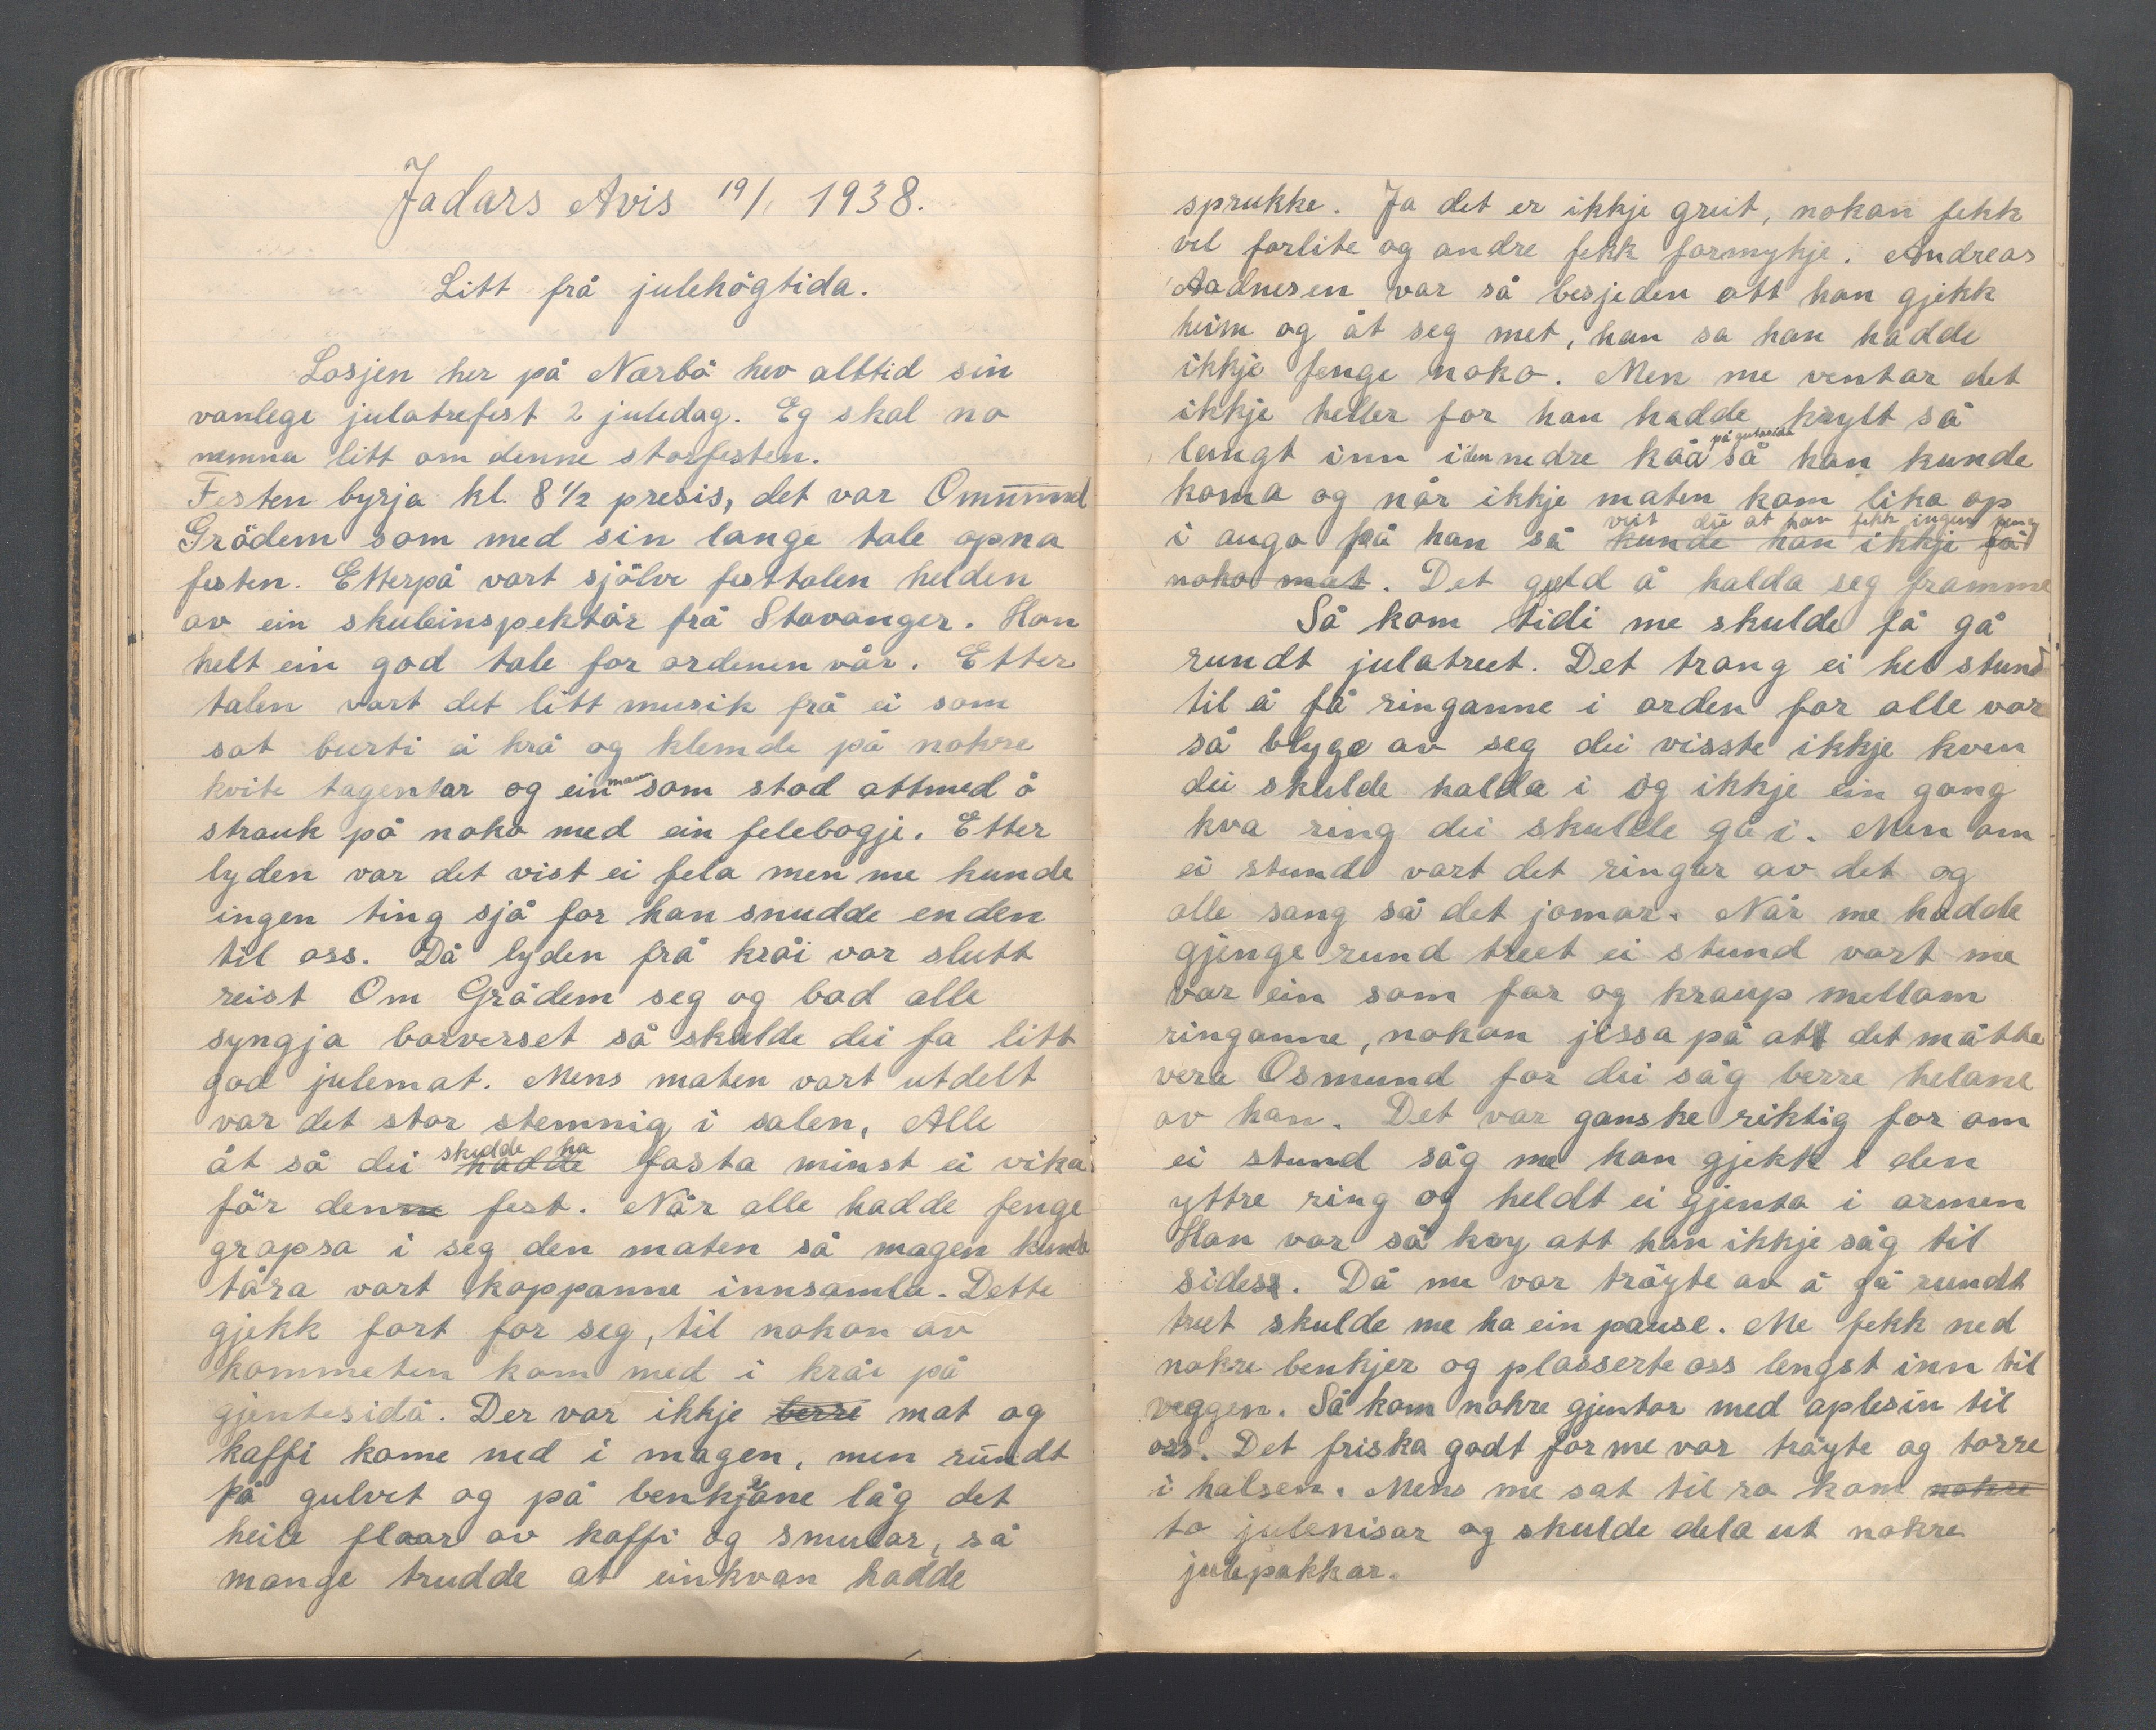 Jadars Avis 19/1 1938.
Litt frå julehögtida.
Losjen her på Nærbö hev alltid sin
vanlege julatrefest 2 juledag. Eg skal no
nemna litt om denne storfesten.
Festen byrja kl. 8 1/2 presis, det var Omund
Grödem som med sin lange tale opna
festen. Etterpå vart sjölve festtalen helden
av ein skuleinspektör frå Stavanger. Han
helt ein god tale for ordenen vår. Etter
talen vart det litt musik frå ei som
sat burti ei krå og klemde på nokre
kvite tagentar og ein man som stod attmed å
strauk på noko med ein felebogje. Etter
lyden var det vist ei fela men me kunde
ingen ting sjå for han snudde enden
til oss. Då lyden frå kråi var slutt
reist Om Grödem seg og bad alle
syngja borverset så skulde dei fa litt
god julemat. Mens maten vart utdelt
var det stor stemnig i salen, Alle
åt så dei hadde skulde ha fasta minst ei vika
för denne fest. Når alle hadde fenge
grapsa i seg den maten så magen kunde
tåra vart koppanne innsamla. Dette
gjekk fort for seg, til nokon av
kommeten kom ned i kråi på
gjentesidå. Der var ikkje berre mat og
kaffi kome ned i magen, men rundt
på gulvet og på benkjane låg det
heile flaar av kaffi og smular, så
mange trudde at einkvan hadde
sprukke. Ja det er ikkje greit, nokan fekk
vel forlite og andre fekk formykje. Andreas
Aadnesen var så besjeden att han gjekk
heim og åt seg met, han sa han hadde
ikkje fenge noko. Men me ventar det
ikkje heller for han hadde krylt så
langt inn i den nedre kåå på gutasida så han kunde
koma og når ikkje maten kom lika op
i auga på han så kunde han ikkje få vist dei at han fekk ingen
noko mat. Det geld å halda seg framme
Så kom tidi me skulde få gå
rundt julatreet. Det trang ei hel stund
til å få ringanne i orden for alle var
så blyge av seg dei visste ikkje kven
dei skulde halda i og ikkje ein gong
kva ring dei skulde gå i. Men om
ei stund vart det ringar av det og
alle sang så det jomar. Når me hadde
gjenge rund treet ei stund vart me
var ein som for og kraup mellom
ringanne, nokon jissa på att det måtte
vera Osmund for dei såg berre helane
av han. Det var ganske riktig for om
ei stund såg me han gjekk i den
yttre ring og heldt ei gjenta i armen
Han var så kry att han ikkje såg til
sides. Då me var tröyte av å gå rundt
treet skulde me ha ein pause. Me fekk ned
nokre benkjer og plasserte oss lengst inn til
veggen. Så kom nokre gjentor med aplesin til
oss. Det friska godt for me var tröyte og torre
i halsen. Mens me sat til ro kom nokre
to julenisar og skulde dela ut nokre
julepakkar.